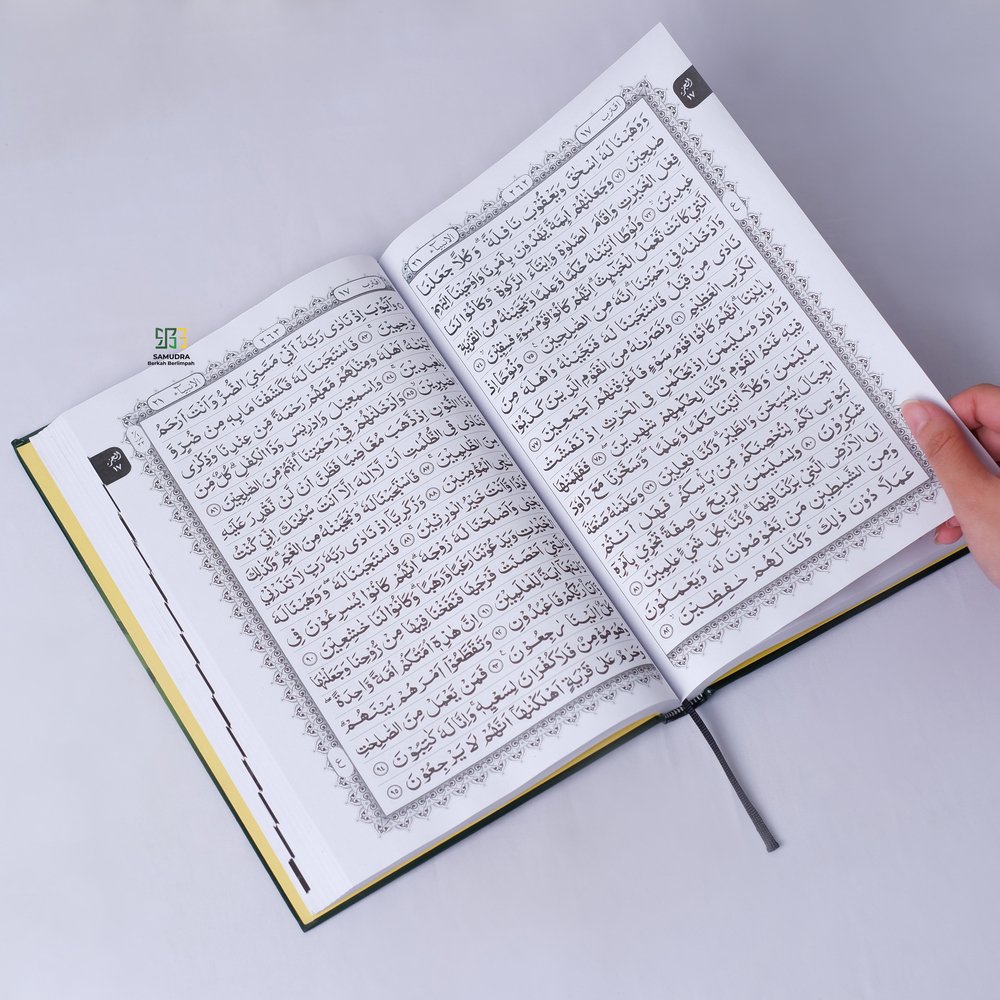 الجزء ١٧
اقترب ١٧
٢٦٢
الانبياء ٢١
وَوَهَبْنَا لَهٗٓ اِسْحٰقَ وَيَعْقُوْبَ نَافِلَةً ۗ وَكُلًّا جَعَلْنَا
صٰلِحِيْنَ ٧٢ وَجَعَلْنٰهُمْ اَىِٕمَّةً يَّهْدُوْنَ بِاَمْرِنَا وَاَوْحَيْنَآ اِلَيْهِمْ
فِعْلَ الْخَيْرٰتِ وَاِقَامَ الصَّلٰوةِ وَاِيْتَاۤءَ الزَّكٰوةِۚ وَكَانُوْا لَنَا
عٰبِدِيْنَ ٧٣ وَلُوْطًا اٰتَيْنٰهُ حُكْمًا وَّعِلْمًا وَّنَجَّيْنٰهُ مِنَ الْقَرْيَةِ
الَّتِيْ كَانَتْ تَّعْمَلُ الْخَبٰۤىِٕثَ ۗ اِنَّهُمْ كَانُوْا قَوْمَ سَوْءٍ فٰسِقِيْنَ ٧٤
وَاَدْخَلْنٰهُ فِيْ رَحْمَتِنَا ۗ اِنَّهٗ مِنَ الصّٰلِحِيْنَ ٧٥ وَنُوْحًا اِذْ
نَادٰى مِنْ قَبْلُ فَاسْتَجَبْنَا لَهٗ فَنَجَّيْنٰهُ وَاَهْلَهٗ مِنَ
الْكَرْبِ الْعَظِيْمِ ٧٦ وَنَصَرْنٰهُ مِنَ الْقَوْمِ الَّذِيْنَ كَذَّبُوْا
بِاٰيٰتِنَا ۗ اِنَّهُمْ كَانُوْا قَوْمَ سَوْءٍ فَاَغْرَقْنٰهُمْ اَجْمَعِيْنَ ٧٧
وَدَاوٗدَ وَسُلَيْمٰنَ اِذْ يَحْكُمٰنِ فِى الْحَرْثِ اِذْ نَفَشَتْ
فِيْهِ غَنَمُ الْقَوْمِ ۚ وَكُنَّا لِحُكْمِهِمْ شٰهِدِيْنَ ٧٨ فَفَهَّمْنٰهَا
سُلَيْمٰنَ ۚ وَكُلًّا اٰتَيْنَا حُكْمًا وَّعِلْمًا ۖ وَّسَخَّرْنَا مَعَ دَاوٗدَ
الْجِبَالَ يُسَبِّحْنَ وَالطَّيْرَ ۗ وَكُنَّا فٰعِلِيْنَ ٧٩ وَعَلَّمْنٰهُ صَنْعَةَ
لَبُوْسٍ لَّكُمْ لِتُحْصِنَكُمْ مِّنْۢ بَأْسِكُمْ ۚ فَهَلْ اَنْتُمْ
شٰكِرُوْنَ ٨٠ وَلِسُلَيْمٰنَ الرِّيْحَ عَاصِفَةً تَجْرِيْ بِاَمْرِهٖٓ
اِلَى الْاَرْضِ الَّتِيْ بٰرَكْنَا فِيْهَا ۗ وَكُنَّا بِكُلِّ شَيْءٍ عٰلِمِيْنَ ٨١
وَمِنَ الشَّيٰطِيْنِ مَنْ يَّغُوْصُوْنَ لَهٗ وَيَعْمَلُوْنَ
عَمَلًا دُوْنَ ذٰلِكَ ۚ وَكُنَّا لَهُمْ حٰفِظِيْنَ ٨٢
ع
اقترب ١٧
٢٦٣
الانبياء ٢١
الجزء ١٧
وَاَيُّوْبَ اِذْ نَادٰى رَبَّهٗٓ اَنِّيْ مَسَّنِيَ الضُّرُّ وَاَنْتَ اَرْحَمُ
الرّٰحِمِيْنَ ٨٣ فَاسْتَجَبْنَا لَهٗ فَكَشَفْنَا مَا بِهٖ مِنْ ضُرٍّ
وَّاٰتَيْنٰهُ اَهْلَهٗ وَمِثْلَهُمْ مَّعَهُمْ رَحْمَةً مِّنْ عِنْدِنَا وَذِكْرٰى
لِلْعٰبِدِيْنَ ٨٤ وَاِسْمٰعِيْلَ وَاِدْرِيْسَ وَذَا الْكِفْلِ ۗ كُلٌّ مِّنَ
الصّٰبِرِيْنَ ٨٥ وَاَدْخَلْنٰهُمْ فِيْ رَحْمَتِنَا ۗ اِنَّهُمْ مِّنَ الصّٰلِحِيْنَ ٨٦
وَذَا النُّوْنِ اِذْ ذَّهَبَ مُغَاضِبًا فَظَنَّ اَنْ لَّنْ نَّقْدِرَ عَلَيْهِ
فَنَادٰى فِى الظُّلُمٰتِ اَنْ لَّآ اِلٰهَ اِلَّآ اَنْتَ سُبْحٰنَكَ اِنِّيْ كُنْتُ
مِنَ الظّٰلِمِيْنَ ٨٧ فَاسْتَجَبْنَا لَهٗ ۙ وَنَجَّيْنٰهُ مِنَ الْغَمِّ ۗ وَكَذٰلِكَ
نُـْۨجِى الْمُؤْمِنِيْنَ ٨٨ وَزَكَرِيَّآ اِذْ نَادٰى رَبَّهٗ رَبِّ لَا تَذَرْنِيْ
فَرْدًا وَّاَنْتَ خَيْرُ الْوٰرِثِيْنَ ٨٩ فَاسْتَجَبْنَا لَهٗ ۖ وَوَهَبْنَا لَهٗ
يَحْيٰى وَاَصْلَحْنَا لَهٗ زَوْجَهٗ ۗ اِنَّهُمْ كَانُوْا يُسٰرِعُوْنَ فِى
الْخَيْرٰتِ وَيَدْعُوْنَنَا رَغَبًا وَّرَهَبًا ۗ وَكَانُوْا لَنَا خٰشِعِيْنَ ٩٠
وَالَّتِيْٓ اَحْصَنَتْ فَرْجَهَا فَنَفَخْنَا فِيْهَا مِنْ رُّوْحِنَا وَجَعَلْنٰهَا
وَابْنَهَآ اٰيَةً لِّلْعٰلَمِيْنَ ٩١ اِنَّ هٰذِهٖٓ اُمَّتُكُمْ اُمَّةً وَّاحِدَةً ۖ
وَّاَنَا رَبُّكُمْ فَاعْبُدُوْنِ ٩٢ وَتَقَطَّعُوْٓا اَمْرَهُمْ بَيْنَهُمْ ۗ
كُلٌّ اِلَيْنَا رٰجِعُوْنَ ٩٣ فَمَنْ يَّعْمَلْ مِنَ الصّٰلِحٰتِ
وَهُوَ مُؤْمِنٌ فَلَا كُفْرَانَ لِسَعْيِهٖ ۚ وَاِنَّا لَهٗ كٰتِبُوْنَ ٩٤
وَحَرٰمٌ عَلٰى قَرْيَةٍ اَهْلَكْنٰهَآ اَنَّهُمْ لَا يَرْجِعُوْنَ ٩٥
ع
SAMUDRA
Berkah Berlimpah